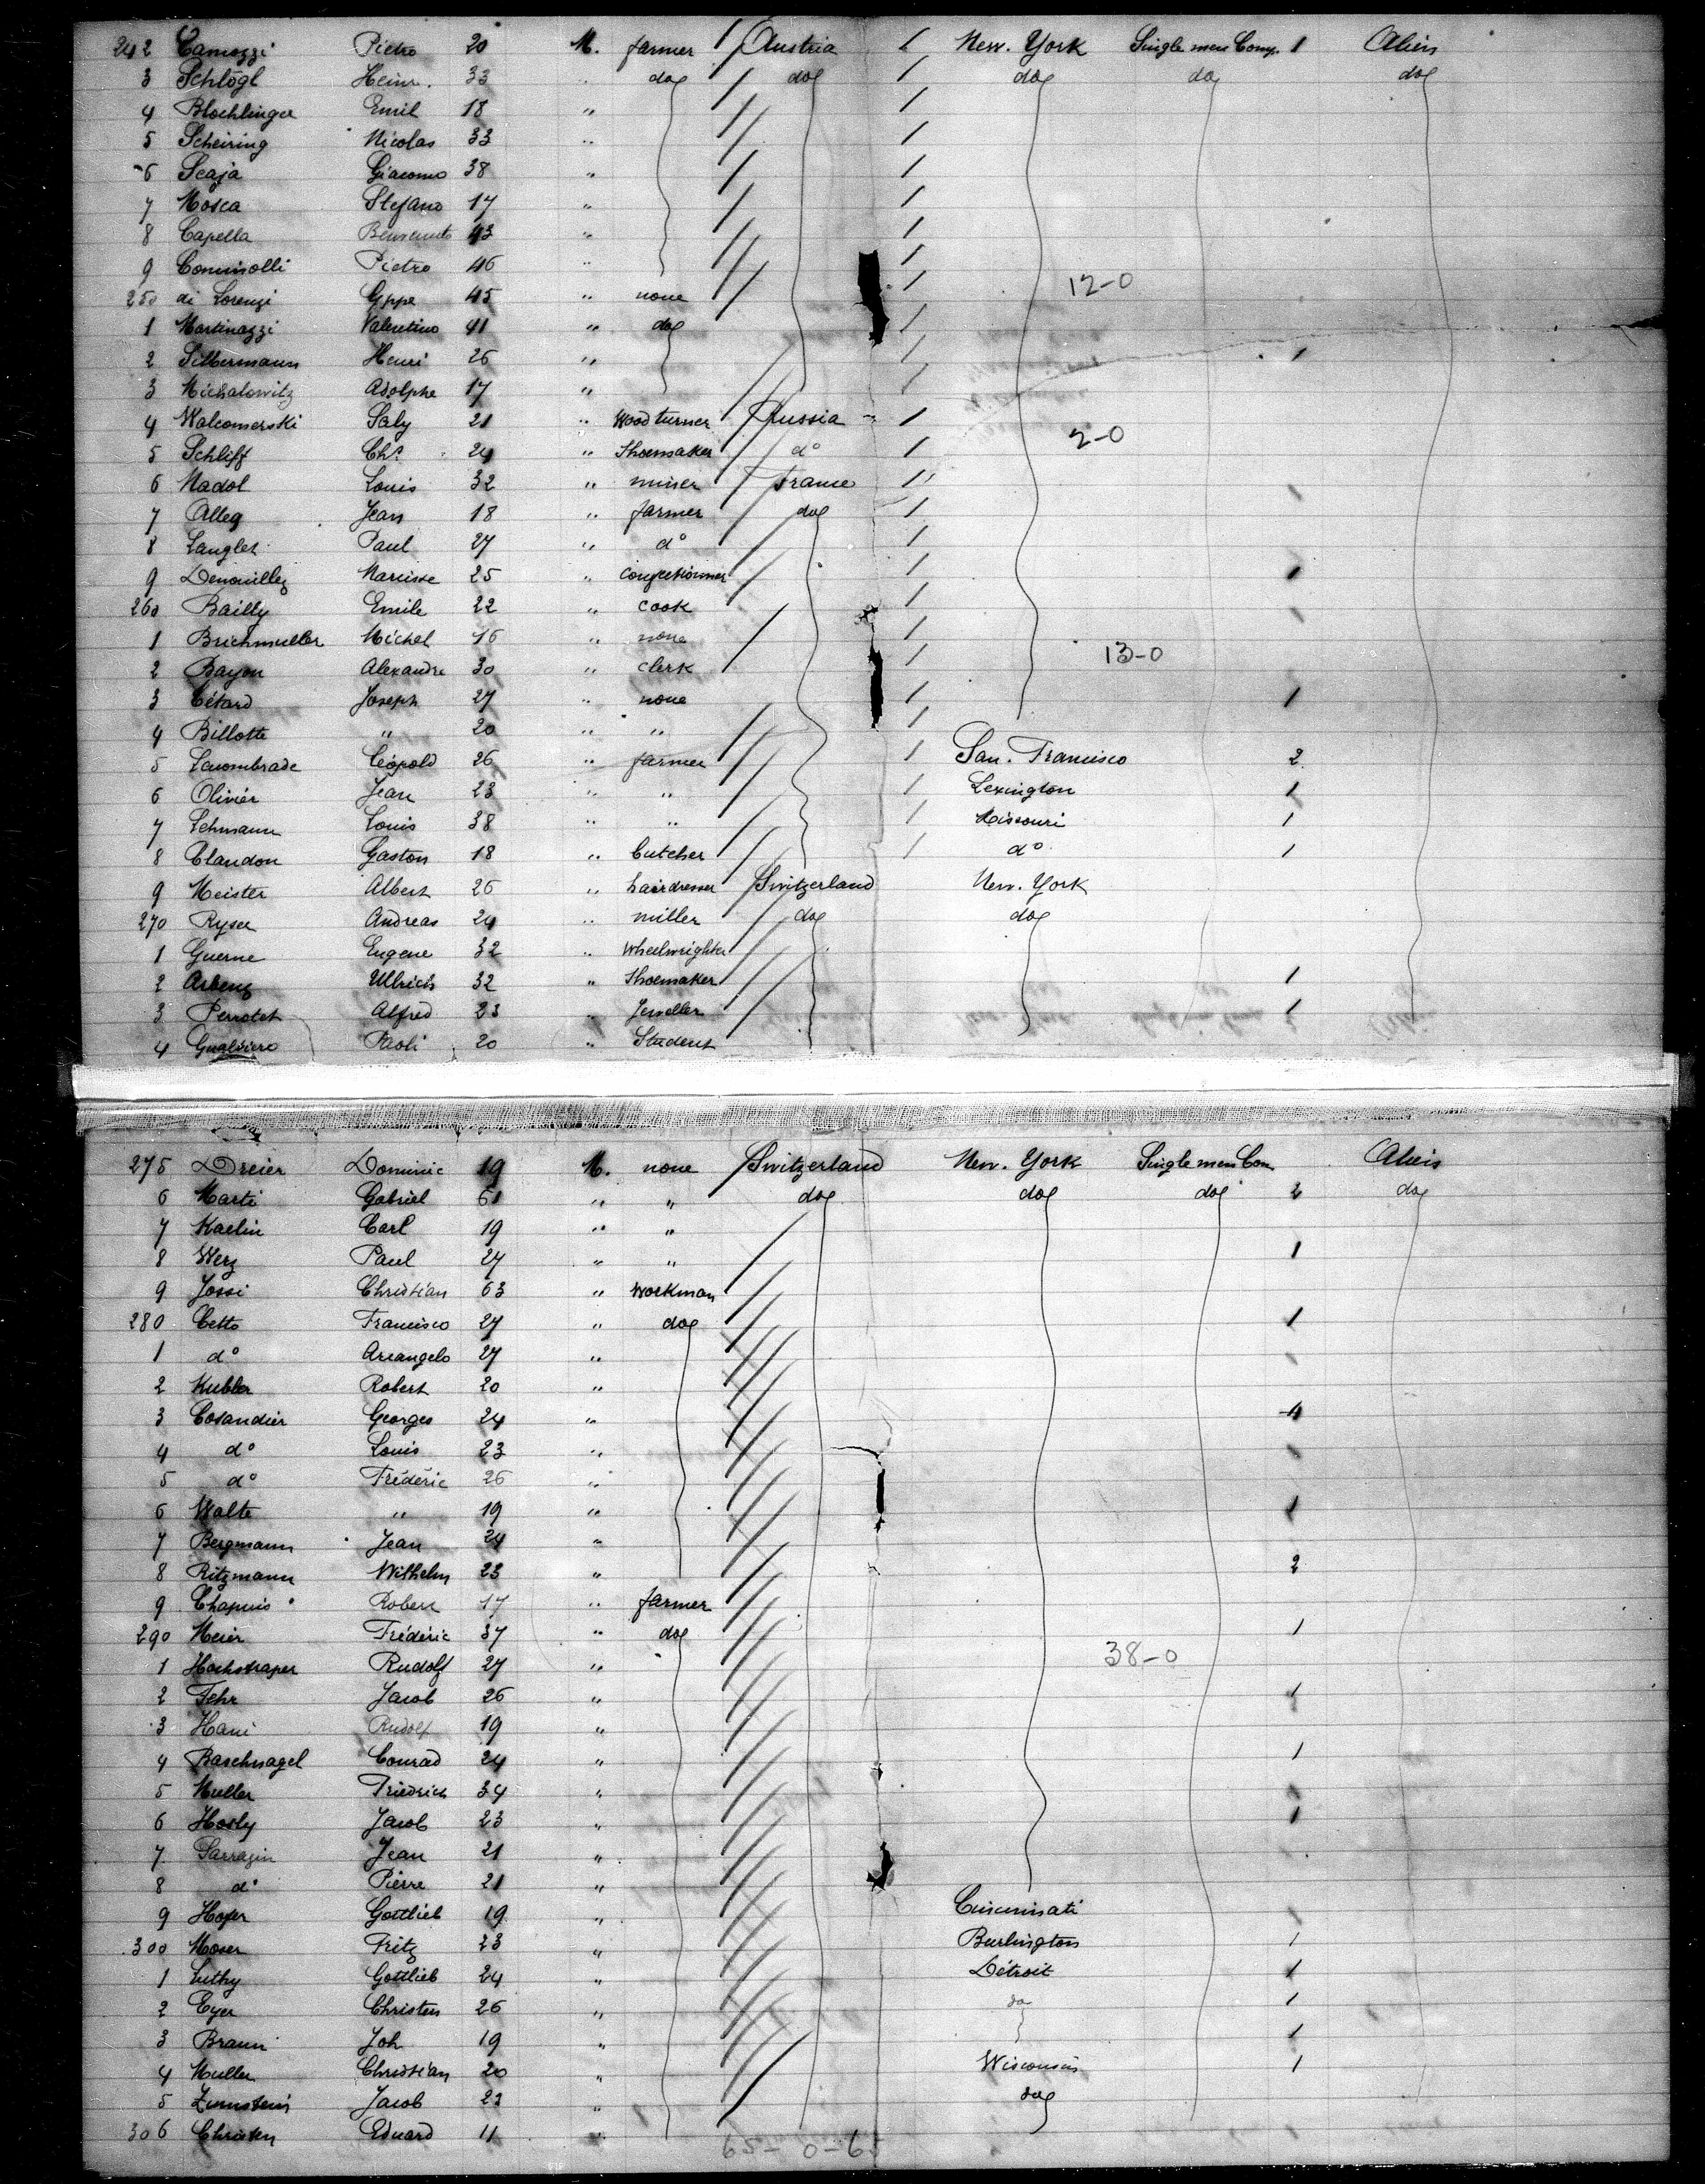 242 Camozzi Pietro 20 M. farmer Austria 1 New. York Single men Comp. 1 Alien
3 Schlögl Heinr. 33 .. do do 1 do do do
4 Blochlinger Emil 18 " 1
5 Scheiring Nicolas 33 " 1
6 Scaja Giacomo 38 " 1
7 Mosca Stefano 17 " 1
8 Capella Benvenuto 43 " 1
9 Cominolli Pietro 46 " 1
12-0
250 di Lorenzi Gppe 45 " none 1
1 Martinazzi Valentino 41 " do 1
2 Silbermann Henri 26 " 1 1
3 Michalowitz Adolphe 17 " 1
4 Walcomerski Saly 21 " Wood turner Russia 1
2-0
5 Schliff Chs 24 " Shoemaker do 1
6 Nadol Louis 32 " miner France 1
7 Alleg Jean 18 " farmer do 1
8 Langlet Paul 27 " do 1
9 Denouillez Narcisse 25 " confectionner 1
260 Bailly Emile 22 " cook 1
1 Brichmuller Michel 46 " none 1
13-0
2 Bayon Alexandre 30 " clerk 1
3 Cétard Joseph 27 " none 1 1
4 Billotte " 20 " " 1
5 Léopold 26 " farmer 1 San. Francisco 2
6 Olivier Jean 23 " " 1 Lexington 1
7 Lehmann Louis 38 " " 1 Missouri 1
8 Claudon Gaston 18 " butcher 1 do 1
9 Meister Albert 26 " hairdresser Switzerland New. York
270 Ryser Andreas 24 " miller do do
1 Guerne Eugene 32 " Wheelwrighter
2 Arbenz Ullrich 32 " Shoemaker 1
3 Perrotet Alfred 23 " Jeweller 1
4 Gualtiero Paoli 20 " Student
275 Dreier Dominic 19 M. none Switzerland New. York Single men Com. Alien
6 Marti Gabriel 61 " " do do do 2 do
7 Kaelin Carl 19 " "
8 Werz Paul 27 " " 1
9 Jossi Christian 63 " Workman
280 Cetto Francisco 27 " do 1
1 do Arcangelo 27 "
2 Kubler Robert 20 "
3 Cosandier Georges 24 " 4
4 do Louis 23 "
5 do Frédéric 26 "
6 Walte " 19 " 1
7 Bergmann Jean 24 "
8 Ritzmann Wilhelm 23 " 2
9 Chapuis Robert 17 " farmer
290 Meier Frédéric 37 " do 1
38-0
1 Hochstraper Rudolf 27 "
2 Fehr Jacob 26 " 1
3 Hani Rudolf 19 "
4 Baschnagel Conrad 24 " 1
5 Muller Friedrich 34 "
6 Hosly Jacob 23 " 1
7 Sarrazin Jean 21 "
8 do Pierre 21 "
9 Hofer Gottlieb 19 " Cincinnati
300 Moser Fritz 23 " Burlington 1
1 Luthy Gottlieb 24 " Détroit 1
2 Eyer Christen 26 " do 1
3 Braun Joh 19 " 1
4 Muller Christian 20 " Wisconsin 1
5 Zumstein Jacob 23 " do
306 Christen Eduard 11 "
65-0-65